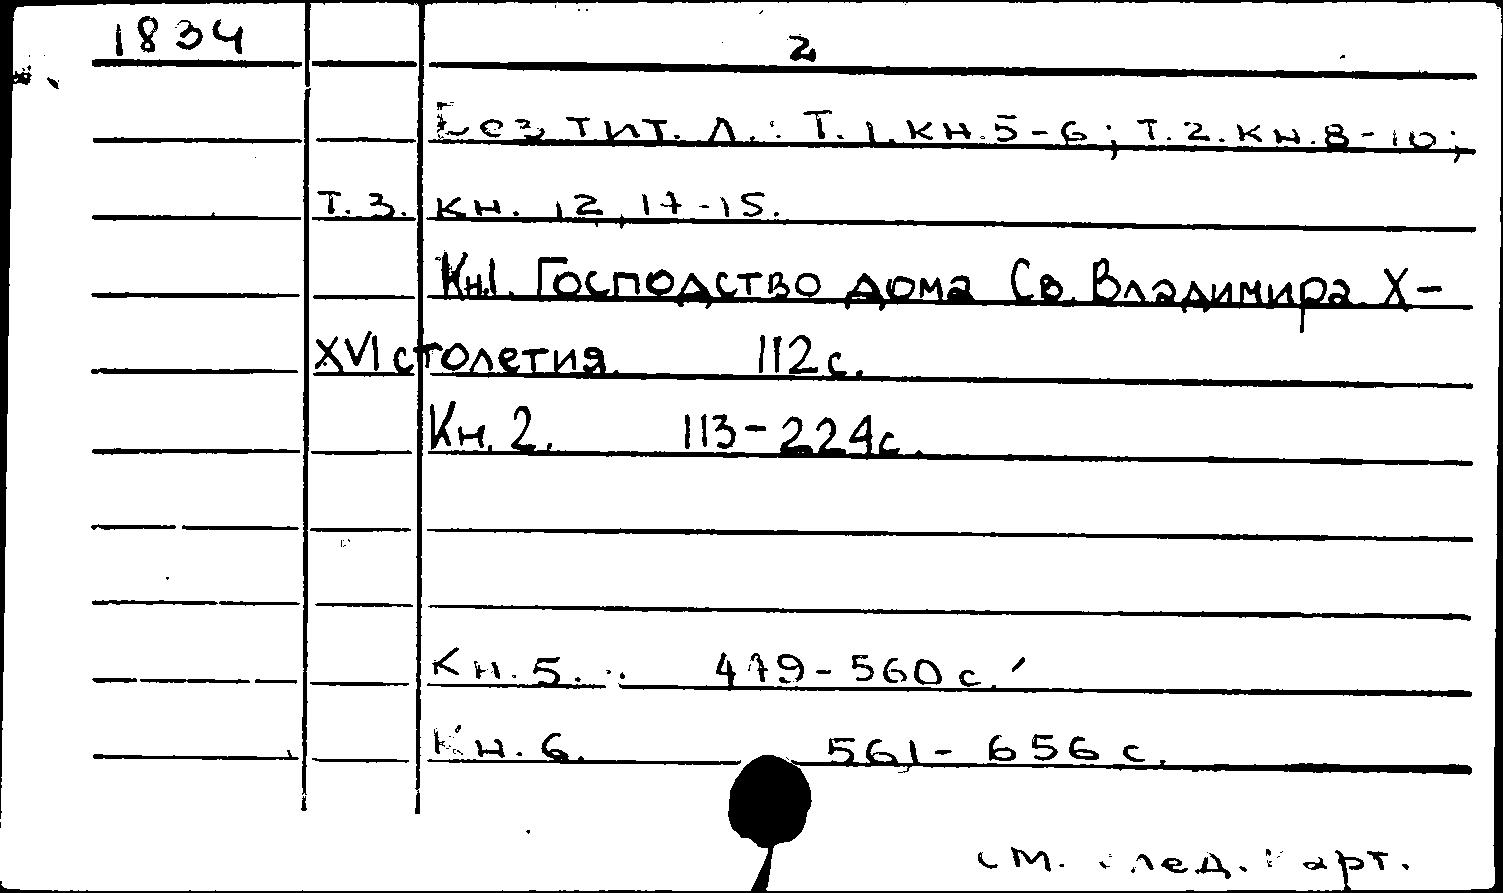 1834
2
Без тит. л.: Т.1. кн.5-6; т.2. кн.8-10;
т.3. кн. 12, 17-15.
Кн.1. Господство дома Св. Владимира X-
XVI столетия. 112 с.
Кн. 2. 113-224 с.
Кн. 5. 479-560 с.
Кн. 6. 561-656 с.
см. след. карт.